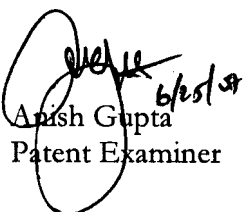 6/25/
Anish Gupta
Patent Examiner